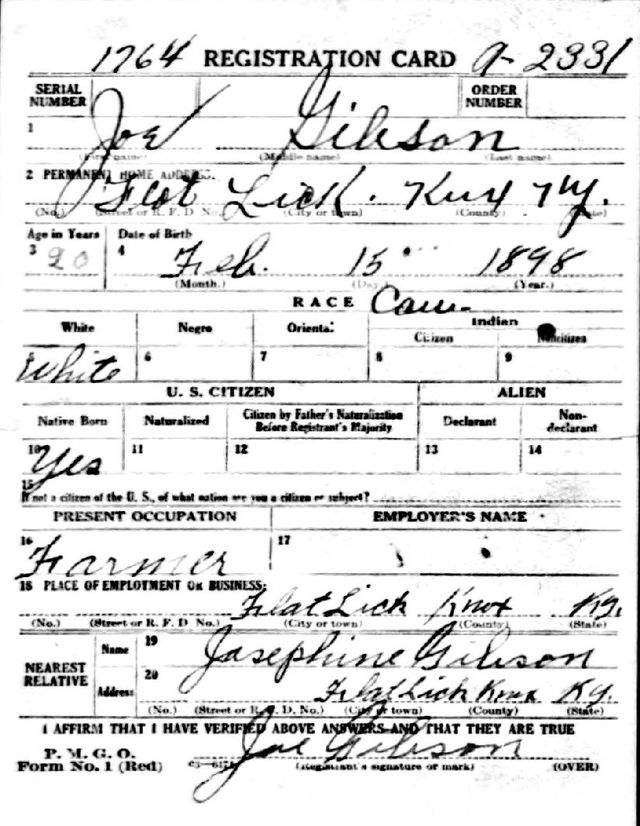 1764 REGISTRATION CARD A-2331
SERIAL NUMBER ORDER NUMBER
1 Joe Gibson
(First name) (Middle name) (Last name)
2 PERMANENT HOME ADDRESS:
Flat Lick. Knx Ky.
(No.) (Street or R. F. D No.) (City or town) (County) (State)
Age in Years Date of Birth
3 20 4 Feb. 15 1898
(Month.) (Day.) (Year.)
RACE Cau-
White Negro Oriental Indian
Citizen Noncitizen
5 6 7 8 9
White
U. S. CITIZEN ALIEN
Native Born Naturalized Citizen by Father's Naturalization Before Registrant's Majority Declarant Non-declarant
10 11 12 13 14
Yes
15
If not a citizen of the U. S., of what nation are you a citizen or subject?
PRESENT OCCUPATION EMPLOYER'S NAME
16 17
Farmer
18 PLACE OF EMPLOYMENT OR BUSINESS:
Flat Lick Knox Ky.
(No.) (Street or R. F. D No.) (City or town) (County) (State)
NEAREST RELATIVE Name 19 Josephine Gibson
Address 20 Flat Lick Knox Ky.
(No.) (Street or R. F. D. No.) (City or town) (County) (State)
I AFFIRM THAT I HAVE VERIFIED ABOVE ANSWERS AND THAT THEY ARE TRUE
P. M. G. O.
Form No. 1 (Red) Joe Gibson
(Registrant's signature or mark) (OVER)